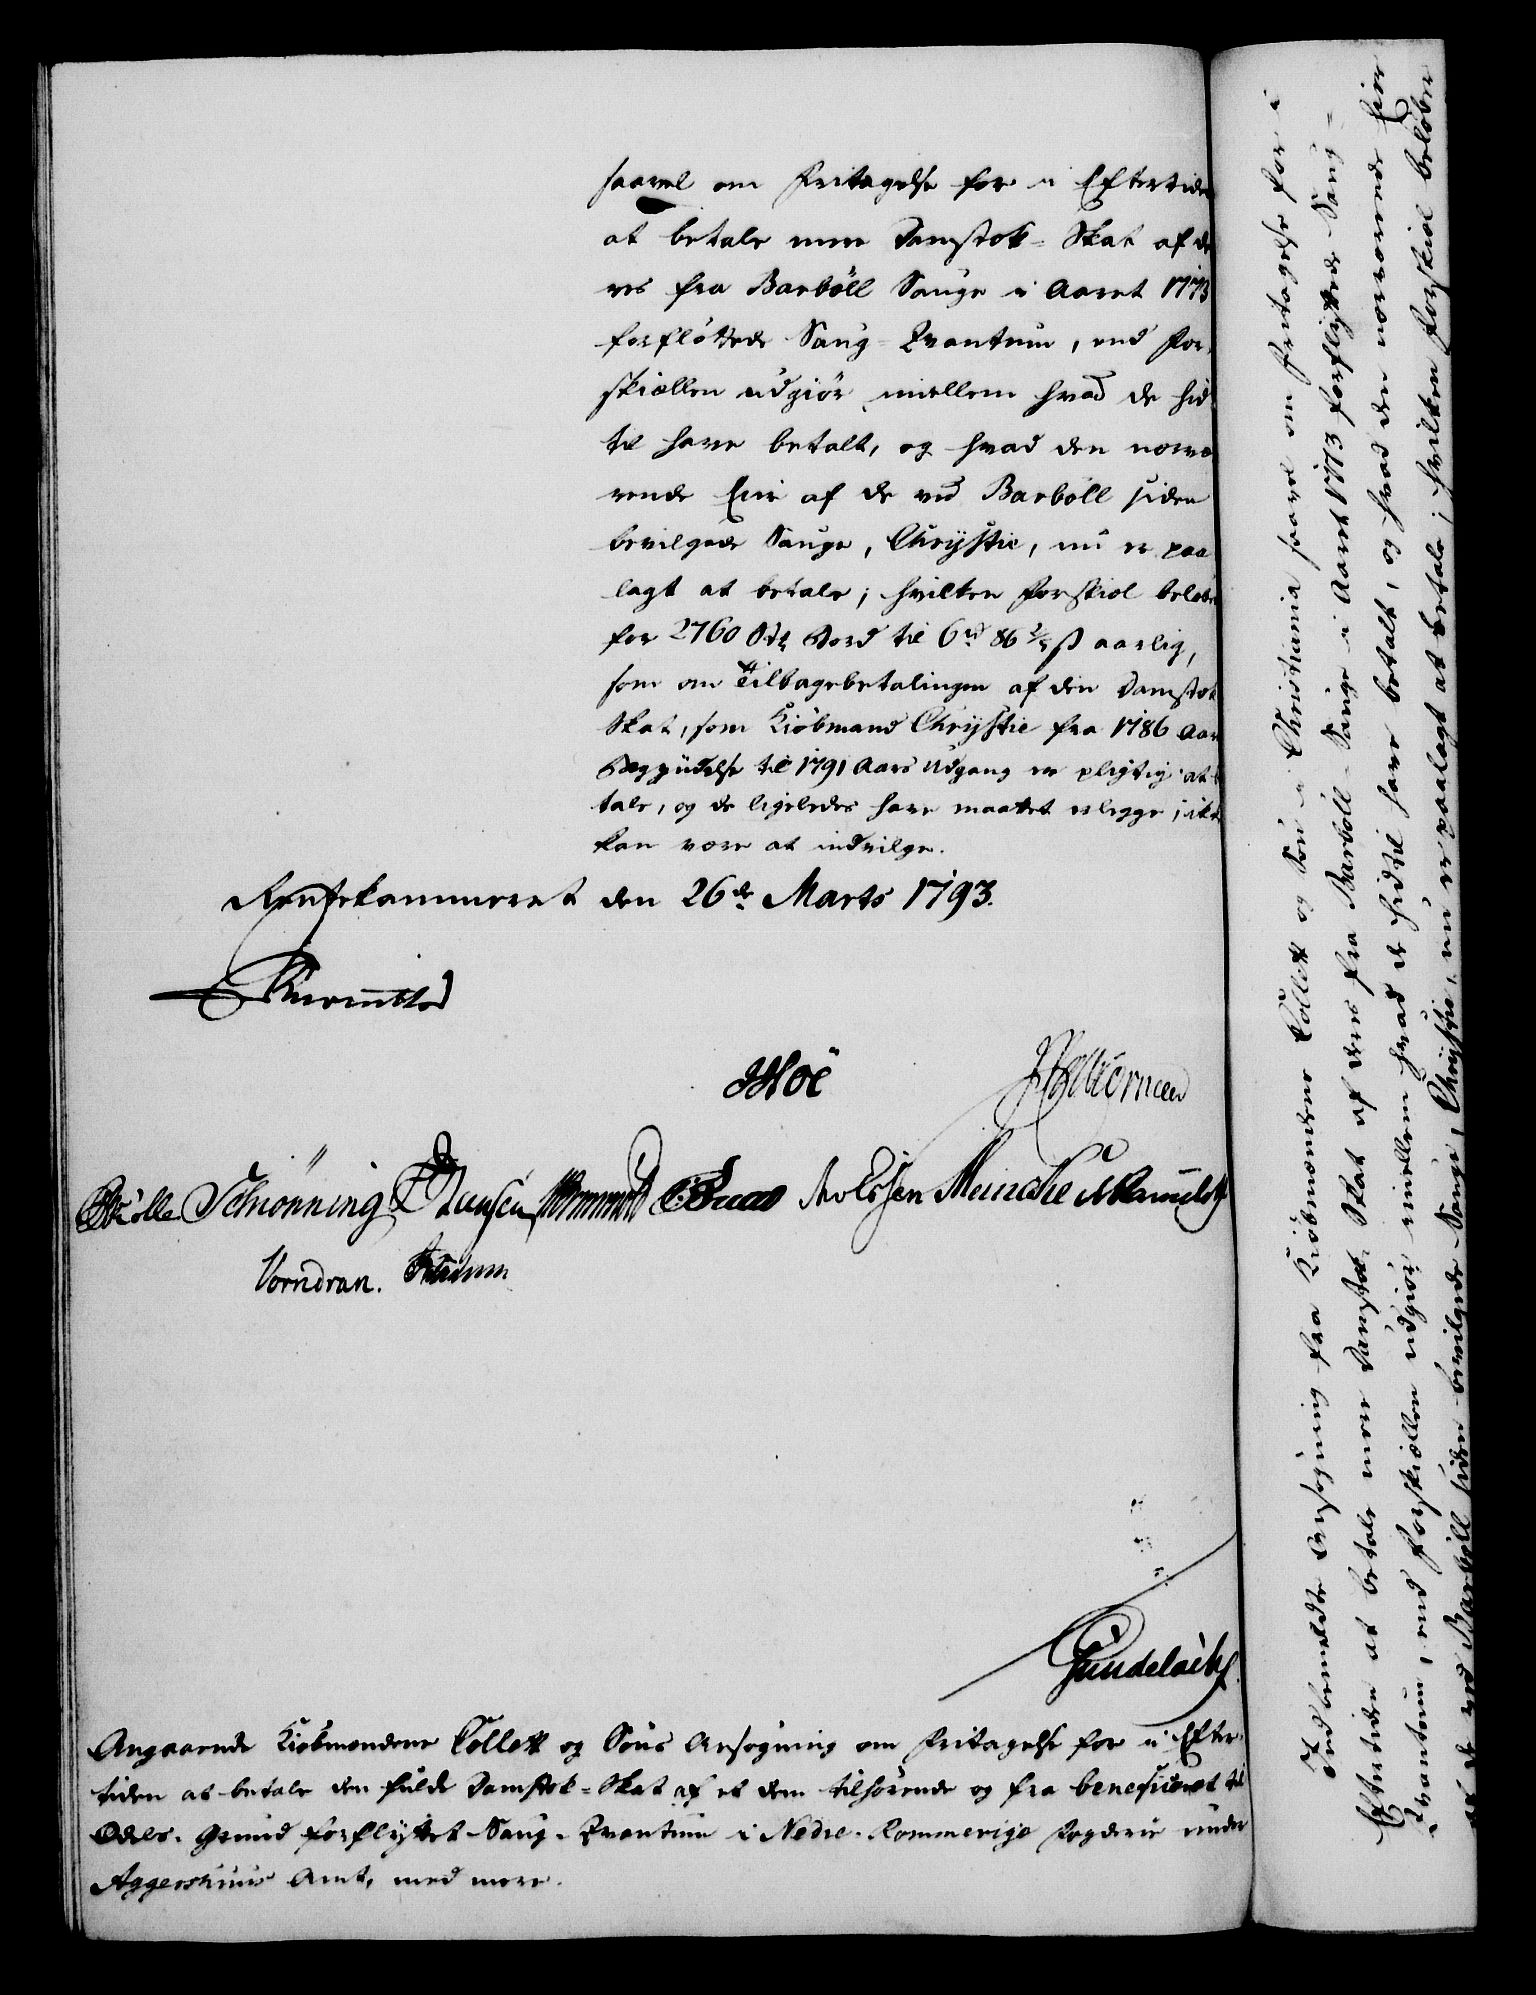 saavel om Fritagelse for i Eftertiden
at betale meer Damstok-Skat af de
res fra Barböll Sauge i Aaret 1773
forflöttede Saug-Qvantum, end For-
skiællen udgiör, mellem hvad de hid-
til have betalt, og hvad den nærvæ
rende Eier af de ved Barböll siden
bevilgede Sauge, Chrÿstie, nu er paa
lagt at betale; hvilken Forskiel beløber
for 2760 Bord til 6 rd 86 2/5 ß aarlig,
som om Tilbagebetalingen af den Damstok
Skat, som Kiöbmand Chrÿstie fra 1786 Aars
Begyndelse til 1791 Aars Udgang er pligtig at be
tale, og de ligeledes have maattet erlegge, ikke
kan være at indvilge.
Rentekammeret den 26de Marts 1793.
JHoë
Schiönning Hansen Meincke
Vorndran.
Gundelach
Angaaende Kiøbmændene Collett og Söns Ansøgning om Fritagelse for i Efter
tiden at betale den fulde Damstok-Skat af et dem tilhørende og fra beneficeret til
Odels-Grund forflyttet Saug-Qvantum i Nedre-Rommerige Fogderie under
Aggershuus Amt, med mere.
Indbemeldte Ansøgning fra Kiøbmændene Collett og Sön i Christiania saavel om Fritagelse for i
Eftertiden at betale meer Damstok-Skat af deres fra Barböll-Sauge i Aaret 1773 forflyttede Saug-
Qvantum, end Forskiællen udgiör mellem hvad de hidtil have betalt, og hvad den nærværende Eier
af de ved Barböll siden bevilgede Sauge, Chrÿstie, nu er paalagt at betale; hvilken Forskiel beløber